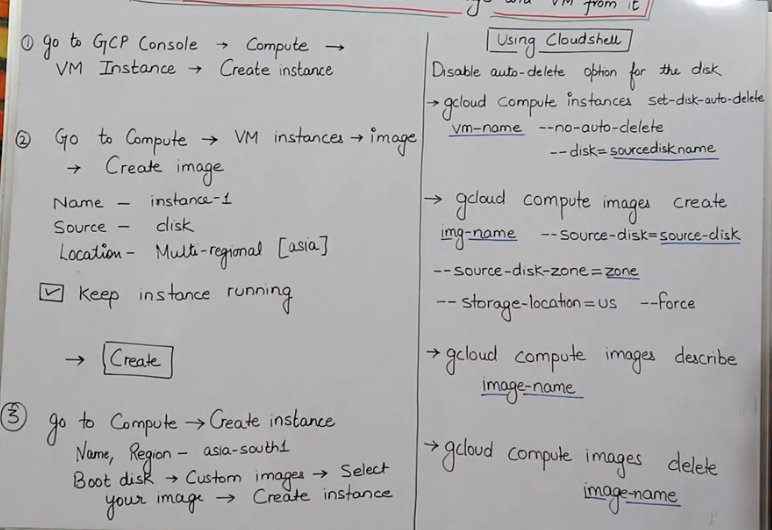 VM from it
① go to GCP Console → Compute →
VM Instance → Create instance
② Go to Compute → VM instances → image
→ Create image
Name - instance-1
Source - disk
Location - Multi-regional [asia]
☑ Keep instance running
→ Create
③ go to Compute → Create instance
Name, Region - asia-south1
Boot disk → Custom images → Select
your image → Create instance
Using Cloudshell
Disable auto-delete option for the disk
→ gcloud compute instances set-disk-auto-delete
vm-name --no-auto-delete
--disk=sourcediskname
→ gcloud compute images create
img-name --source-disk=source-disk
--source-disk-zone=zone
--storage-location=us --force
→ gcloud compute images describe
image-name
→ gcloud compute images delete
image-name